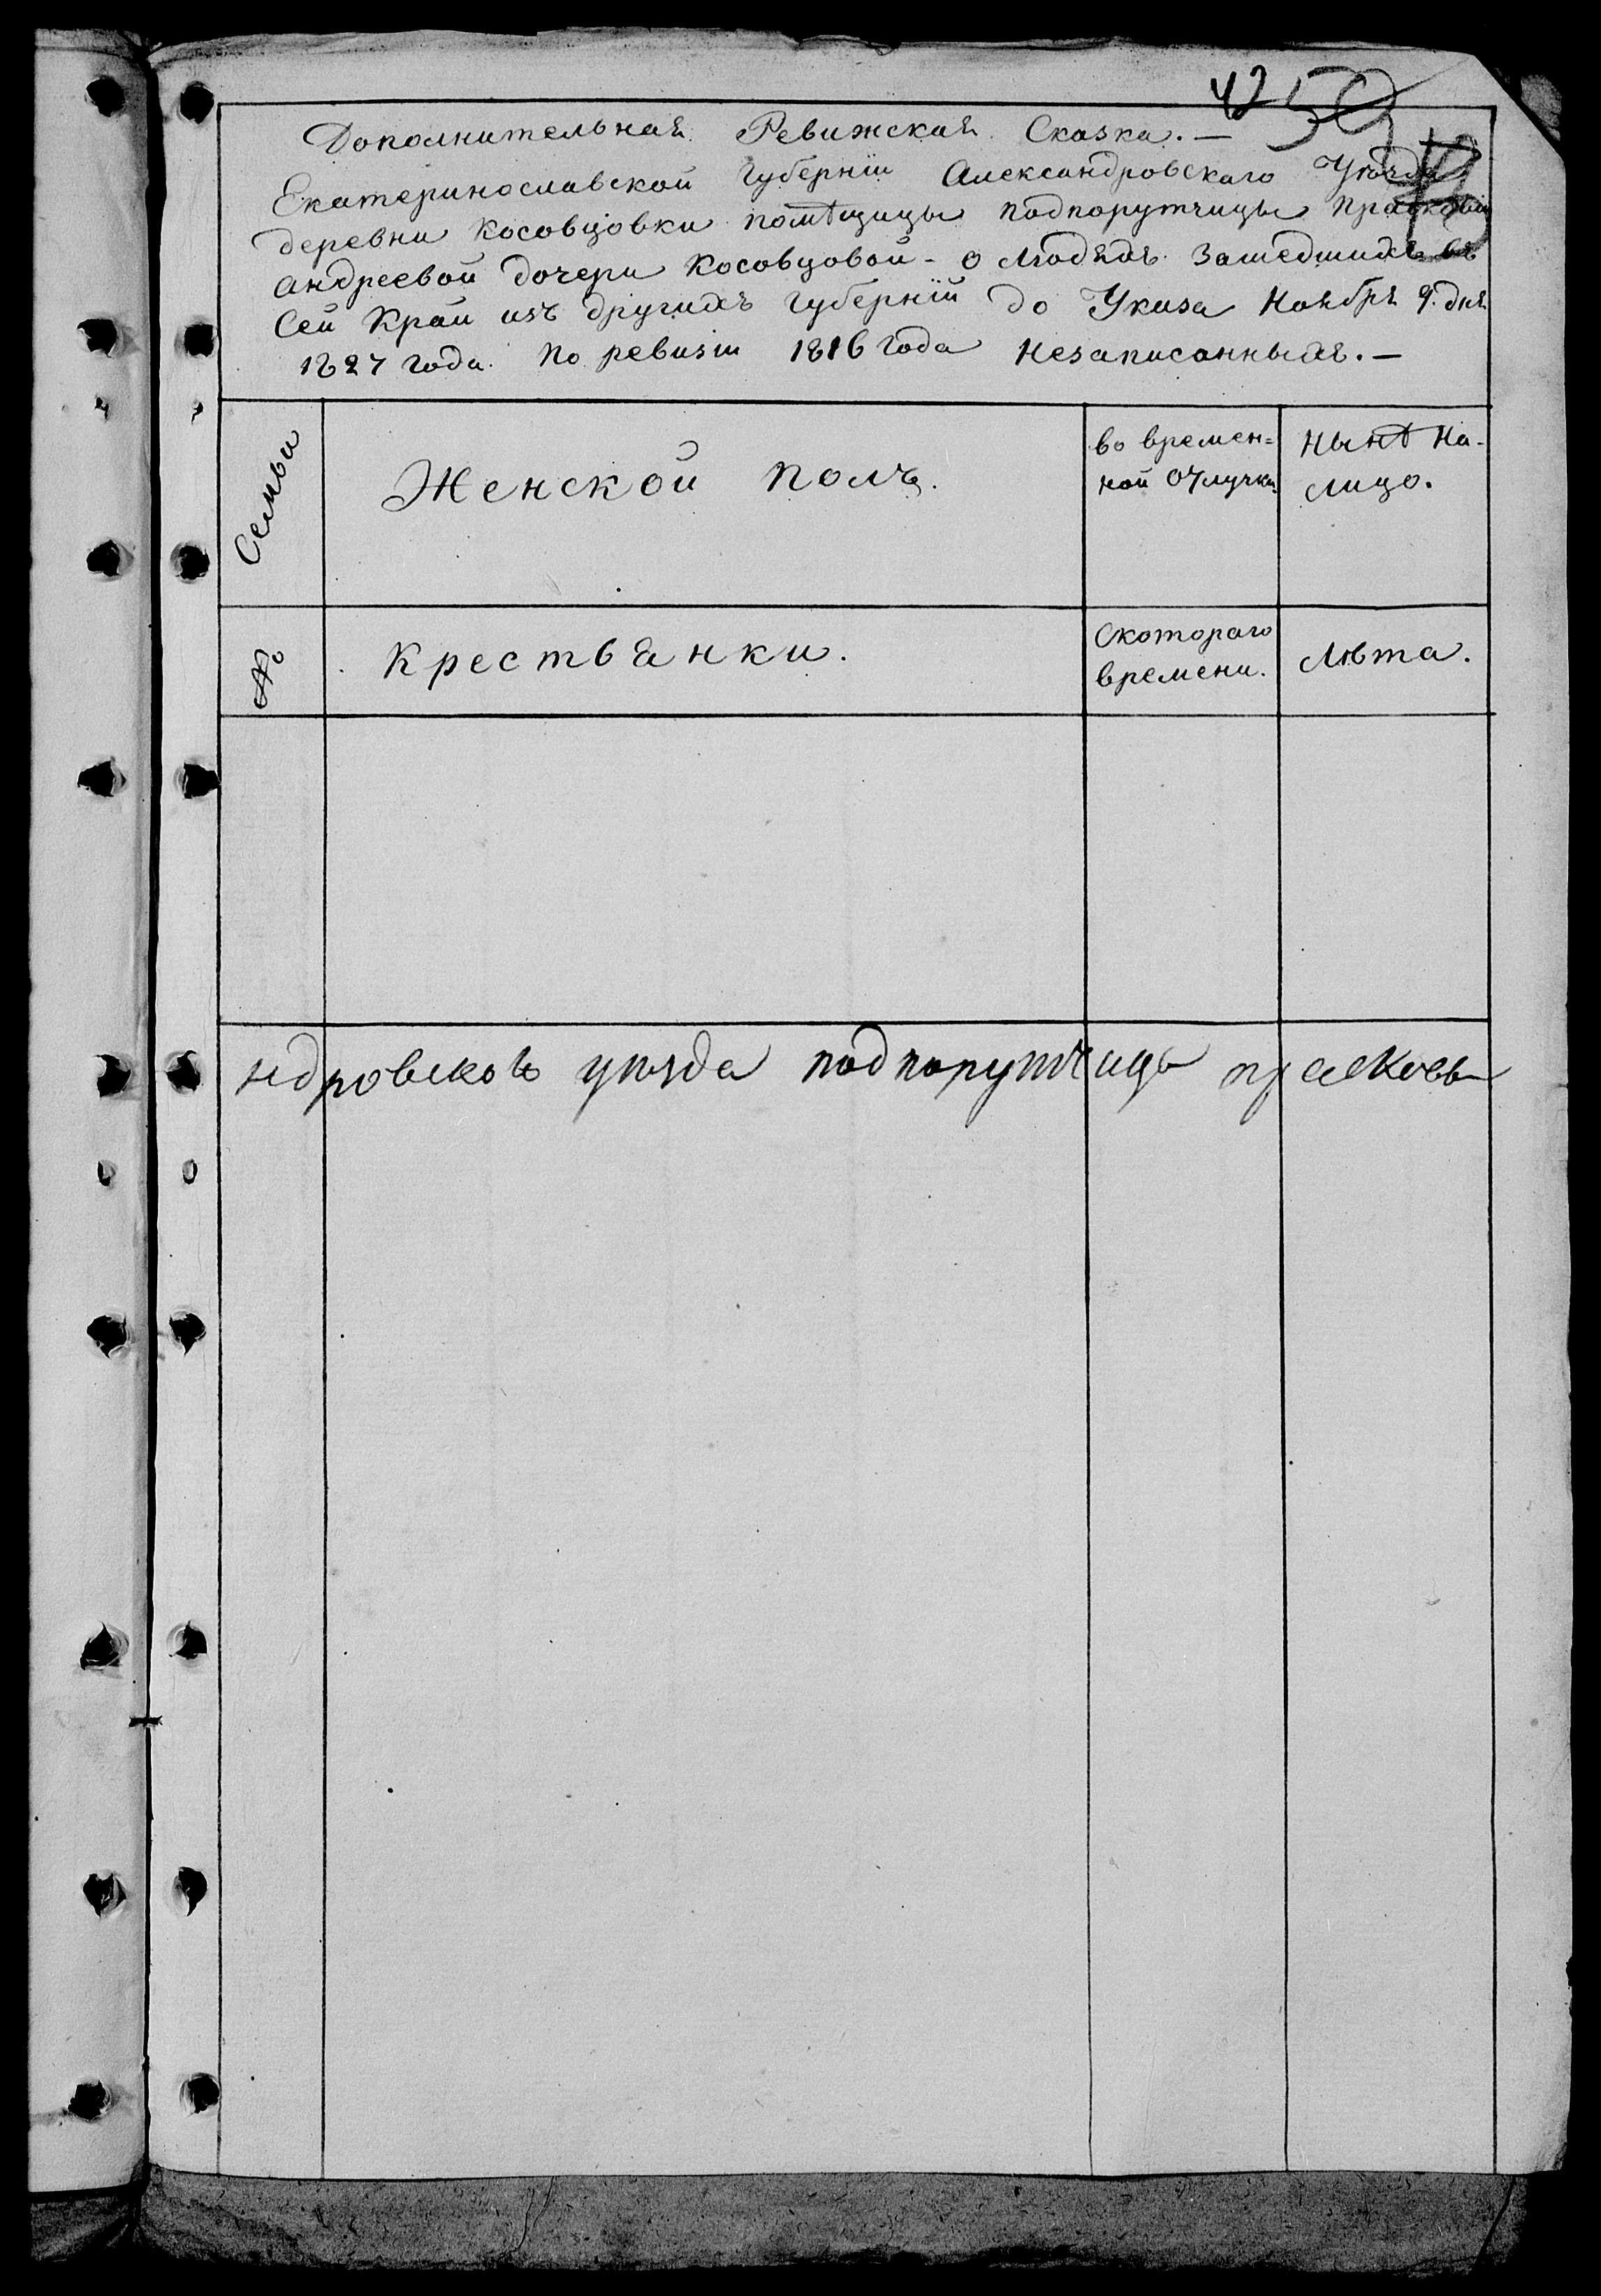 42 59
Дополнительная Ревижская Сказка. —
Екатеринославской губернїи Александровскаго Уѣзда
деревни Косовцовки помѣщицы подпорутчицы Прасковьи
Андреевой дочери Косовцовой - о людяхъ зашедшихъ въ
Сей Край изъ другихъ губернїй до Указа Ноября 9. дня
1827 года. По ревизїи 1816 года незаписанныхъ. —
Семьи
Женской полъ.
во времен=
ной отлучки.
Нынѣ на-
лицо.
№
Крестьянки.
Скотораго
времени.
Лѣта.
ндровского уѣзда подпорутчицы прасковьи